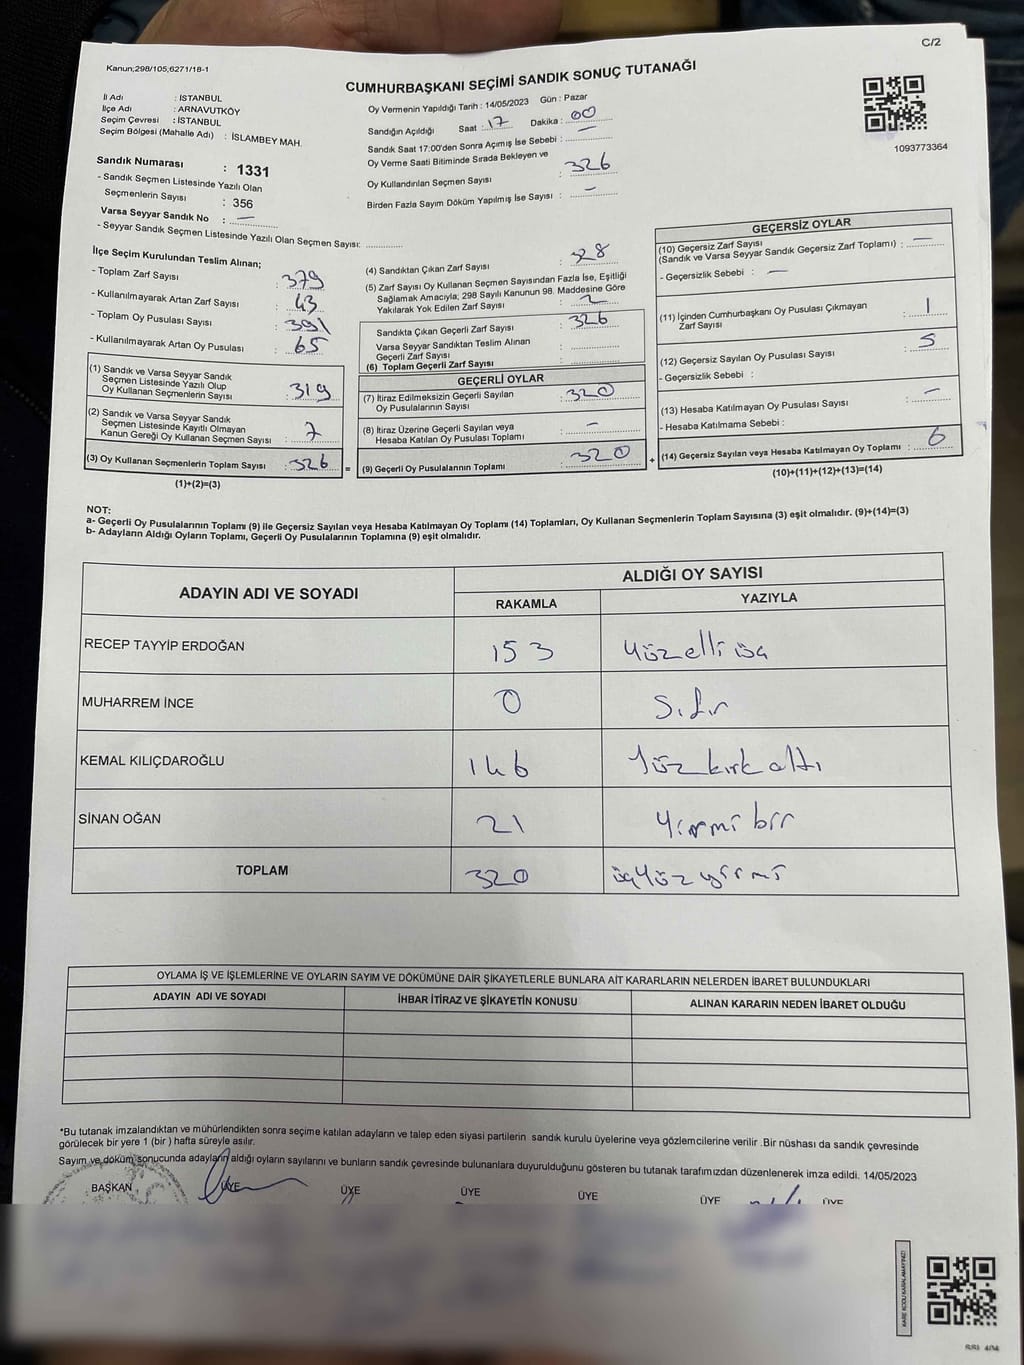 C/2
Kanun;298/105,6271/18-1
CUMHURBAŞKANI SEÇİMİ SANDIK SONUÇ TUTANAĞI
İl Adı : İSTANBUL
İlçe Adı : ARNAVUTKÖY
Seçim Çevresi : İSTANBUL
Seçim Bölgesi (Mahalle Adı) : İSLAMBEY MAH.
Sandık Numarası : 1331
- Sandık Seçmen Listesinde Yazılı Olan
Seçmenlerin Sayısı : 356
Varsa Seyyar Sandık No : —
- Seyyar Sandık Seçmen Listesinde Yazılı Olan Seçmen Sayısı: ..............
Oy Vermenin Yapıldığı Tarih : 14/05/2023 Gün : Pazar
Sandığın Açıldığı Saat : 17 Dakika : 00
Sandık Saat 17:00'den Sonra Açımış İse Sebebi : —
Oy Verme Saati Bitiminde Sırada Bekleyen ve
Oy Kullandırılan Seçmen Sayısı : 326
Birden Fazla Sayım Döküm Yapılmış İse Sayısı : —
1093773364
İlçe Seçim Kurulundan Teslim Alınan;
- Toplam Zarf Sayısı : 379
- Kullanılmayarak Artan Zarf Sayısı : 43
- Toplam Oy Pusulası Sayısı : 391
- Kullanılmayarak Artan Oy Pusulası : 65
(1) Sandık ve Varsa Seyyar Sandık
Seçmen Listesinde Yazılı Olup
Oy Kullanan Seçmenlerin Sayısı : 319
(2) Sandık ve Varsa Seyyar Sandık
Seçmen Listesinde Kayıtlı Olmayan
Kanun Gereği Oy Kullanan Seçmen Sayısı : 7
(3) Oy Kullanan Seçmenlerin Toplam Sayısı : 326
(1)+(2)=(3)
(4) Sandıktan Çıkan Zarf Sayısı : 328
(5) Zarf Sayısı Oy Kullanan Seçmen Sayısından Fazla İse, Eşitliği
Sağlamak Amacıyla; 298 Sayılı Kanunun 98. Maddesine Göre
Yakılarak Yok Edilen Zarf Sayısı : 2
Sandıkta Çıkan Geçerli Zarf Sayısı : 326
Varsa Seyyar Sandıktan Teslim Alınan
Geçerli Zarf Sayısı :
(6) Toplam Geçerli Zarf Sayısı :
GEÇERLİ OYLAR
(7) İtiraz Edilmeksizin Geçerli Sayılan
Oy Pusulalarının Sayısı : 320
(8) İtiraz Üzerine Geçerli Sayılan veya
Hesaba Katılan Oy Pusulası Toplamı : —
= (9) Geçerli Oy Pusulalarının Toplamı : 320 +
GEÇERSİZ OYLAR
(10) Geçersiz Zarf Sayısı
(Sandık ve Varsa Seyyar Sandık Geçersiz Zarf Toplamı) : —
- Geçersizlik Sebebi : —
(11) İçinden Cumhurbaşkanı Oy Pusulası Çıkmayan
Zarf Sayısı : 1
(12) Geçersiz Sayılan Oy Pusulası Sayısı : 5
- Geçersizlik Sebebi :
(13) Hesaba Katılmayan Oy Pusulası Sayısı : —
- Hesaba Katılmama Sebebi :
(14) Geçersiz Sayılan veya Hesaba Katılmayan Oy Toplamı : 6
(10)+(11)+(12)+(13)=(14)
NOT:
a- Geçerli Oy Pusulalarının Toplamı (9) ile Geçersiz Sayılan veya Hesaba Katılmayan Oy Toplamı (14) Toplamları, Oy Kullanan Seçmenlerin Toplam Sayısına (3) eşit olmalıdır. (9)+(14)=(3)
b- Adayların Aldığı Oyların Toplamı, Geçerli Oy Pusulalarının Toplamına (9) eşit olmalıdır.
ADAYIN ADI VE SOYADI ALDIĞI OY SAYISI
RAKAMLA YAZIYLA
RECEP TAYYİP ERDOĞAN 153 Yüzelli üç
MUHARREM İNCE 0 Sıfır
KEMAL KILIÇDAROĞLU 146 Yüz kırk altı
SİNAN OĞAN 21 Yirmi bir
TOPLAM 320 üçyüz yirmi
OYLAMA İŞ VE İŞLEMLERİNE VE OYLARIN SAYIM VE DÖKÜMÜNE DAİR ŞİKAYETLERLE BUNLARA AİT KARARLARIN NELERDEN İBARET BULUNDUKLARI
ADAYIN ADI VE SOYADI İHBAR İTİRAZ VE ŞİKAYETİN KONUSU ALINAN KARARIN NEDEN İBARET OLDUĞU
*Bu tutanak imzalandıktan ve mühürlendikten sonra seçime katılan adayların ve talep eden siyasi partilerin sandık kurulu üyelerine veya gözlemcilerine verilir .Bir nüshası da sandık çevresinde
görülecek bir yere 1 (bir ) hafta süreyle asılır.
Sayım ve döküm sonucunda adayların aldığı oyların sayılarını ve bunların sandık çevresinde bulunanlara duyurulduğunu gösteren bu tutanak tarafımızdan düzenlenerek imza edildi. 14/05/2023
BAŞKAN ÜYE ÜYE ÜYE ÜYE ÜYE ÜYE
KARE KODU KARALAMAYINIZ!